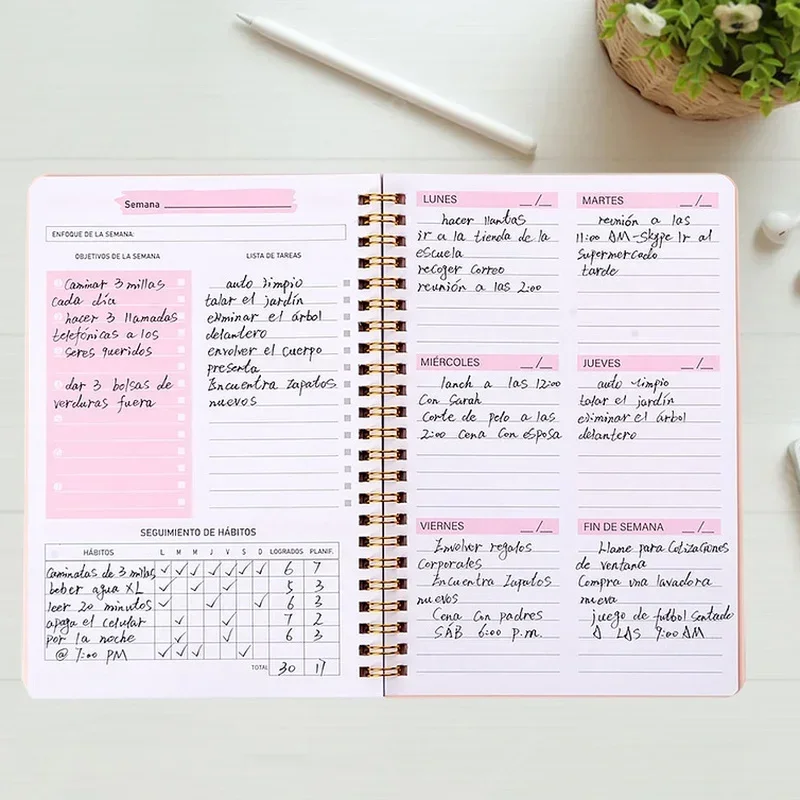 Semana
ENFOQUE DE LA SEMANA:
OBJETIVOS DE LA SEMANA
Caminar 3 millas
cada día
hacer 3 llamadas
telefónicas a los
seres queridos
dar 3 bolsas de
verduras fuera
LISTA DE TAREAS
auto limpio
talar el jardín
eliminar el árbol
delantero
envolver el cuerpo
presenta
Encuentra zapatos
nuevos
SEGUIMIENTO DE HÁBITOS
HÁBITOS L M M J V S D LOGRADOS PLANIF.
Caminatas de 3 millas ✓ ✓ ✓ ✓ ✓ ✓ ✓ 6 7
beber agua XL ✓ ✓ ✓ 5 3
leer 20 minutos ✓ ✓ ✓ 6 3
apaga el celular ✓ ✓ 7 2
por la noche ✓ ✓ 6 3
@ 7:00 PM ✓ ✓ ✓ ✓
TOTAL 30 17
LUNES __/__
hacer llantas
ir a la tienda de la
escuela
recoger correo
reunión a las 2:00
MARTES __/__
reunión a las
11:00 AM-Skype Ir al
supermercado
tarde
MIÉRCOLES __/__
lanch a las 12:00
Con Sarah
Corte de pelo a las
2:00 Cena Con esposa
JUEVES __/__
auto limpio
talar el jardín
eliminar el árbol
delantero
VIERNES __/__
Envolver regalos
Corporales
Encuentra Zapatos
nuevos
Cena Con padres
SÁB 6:00 p.m.
FIN DE SEMANA __/__
Llame para Cotizaciones
de ventana
Compra una lavadora
nueva
juego de futbol Sentado
A LAS 9:00 AM